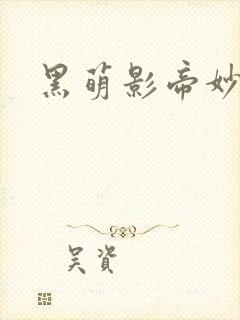 黑萌影帝妙
吴資